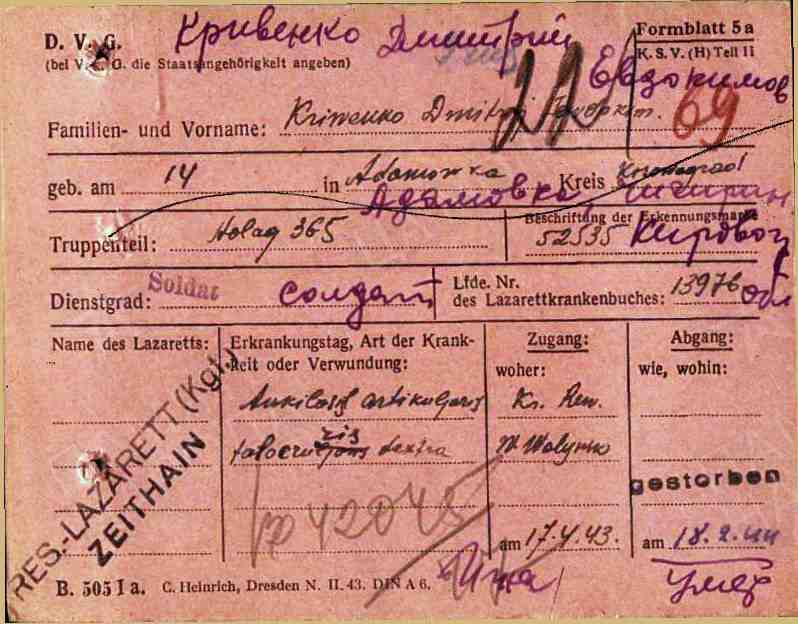 D. V. G. Кривенко Димитрий Formblatt 5a
(bei V. G. die Staatsangehörigkeit angeben) K. S. V. (H) Teil II
Евдокимов
Familien- und Vorname: Kriwenko Dmitrij 69
geb. am 14 in Adamowka Kreis
Адамовка
Beschriftung der Erkennungsmarke
Truppenteil: Holag 365 52535 Кировог
Dienstgrad: Soldat солдат Lfde. Nr.
des Lazarettkrankenbuches: 13976 обл
Name des Lazaretts: Erkrankungstag, Art der Krank-
heit oder Verwundung: Zugang: Abgang:
woher: wie, wohin:
RES.-LAZARETT (Kgf.)
ZEITHAIN
artikularis Kr. Rew.
dextra W Wolynsk
gestorben
42045
am 17.4.43. am 18.2.44
умер
B. 505 I a. C. Heinrich, Dresden N. II. 43. DIN A 6.